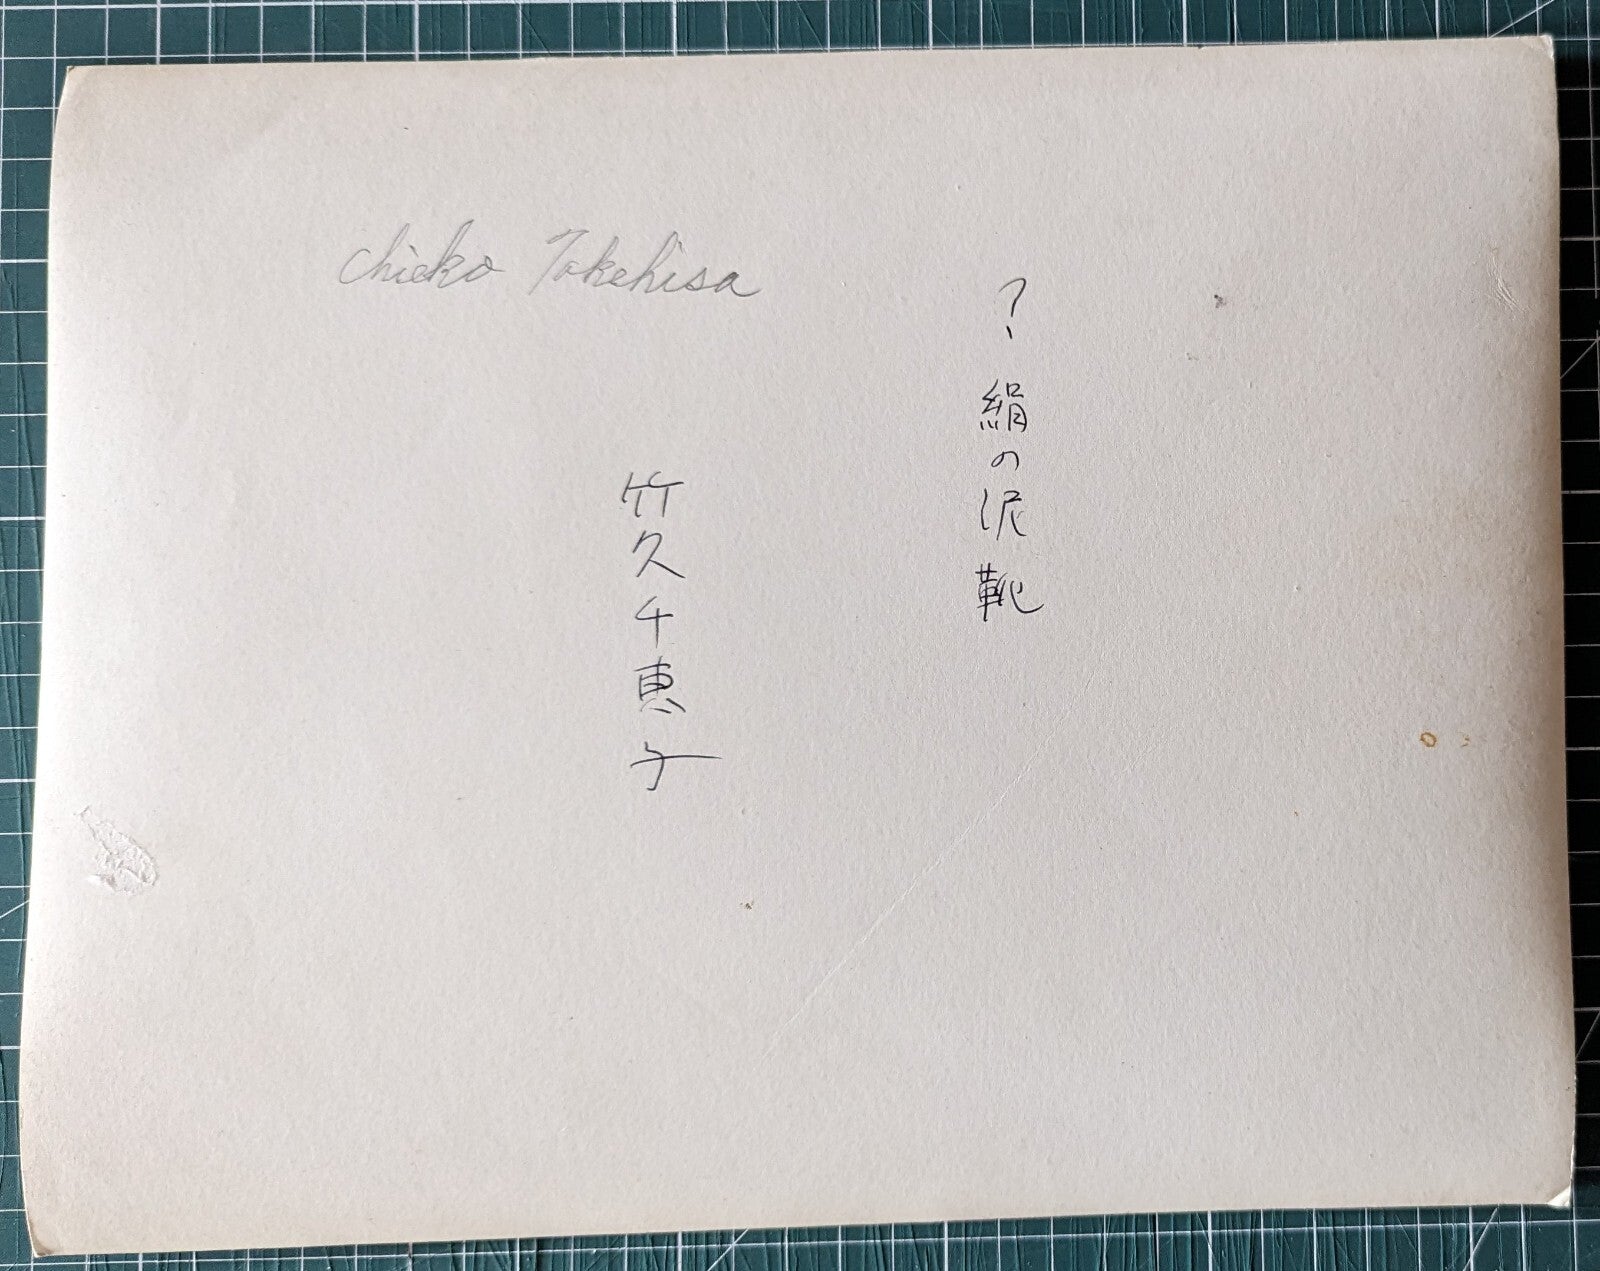 Chieko Takehisa
? 絹の泥靴
竹久千恵子